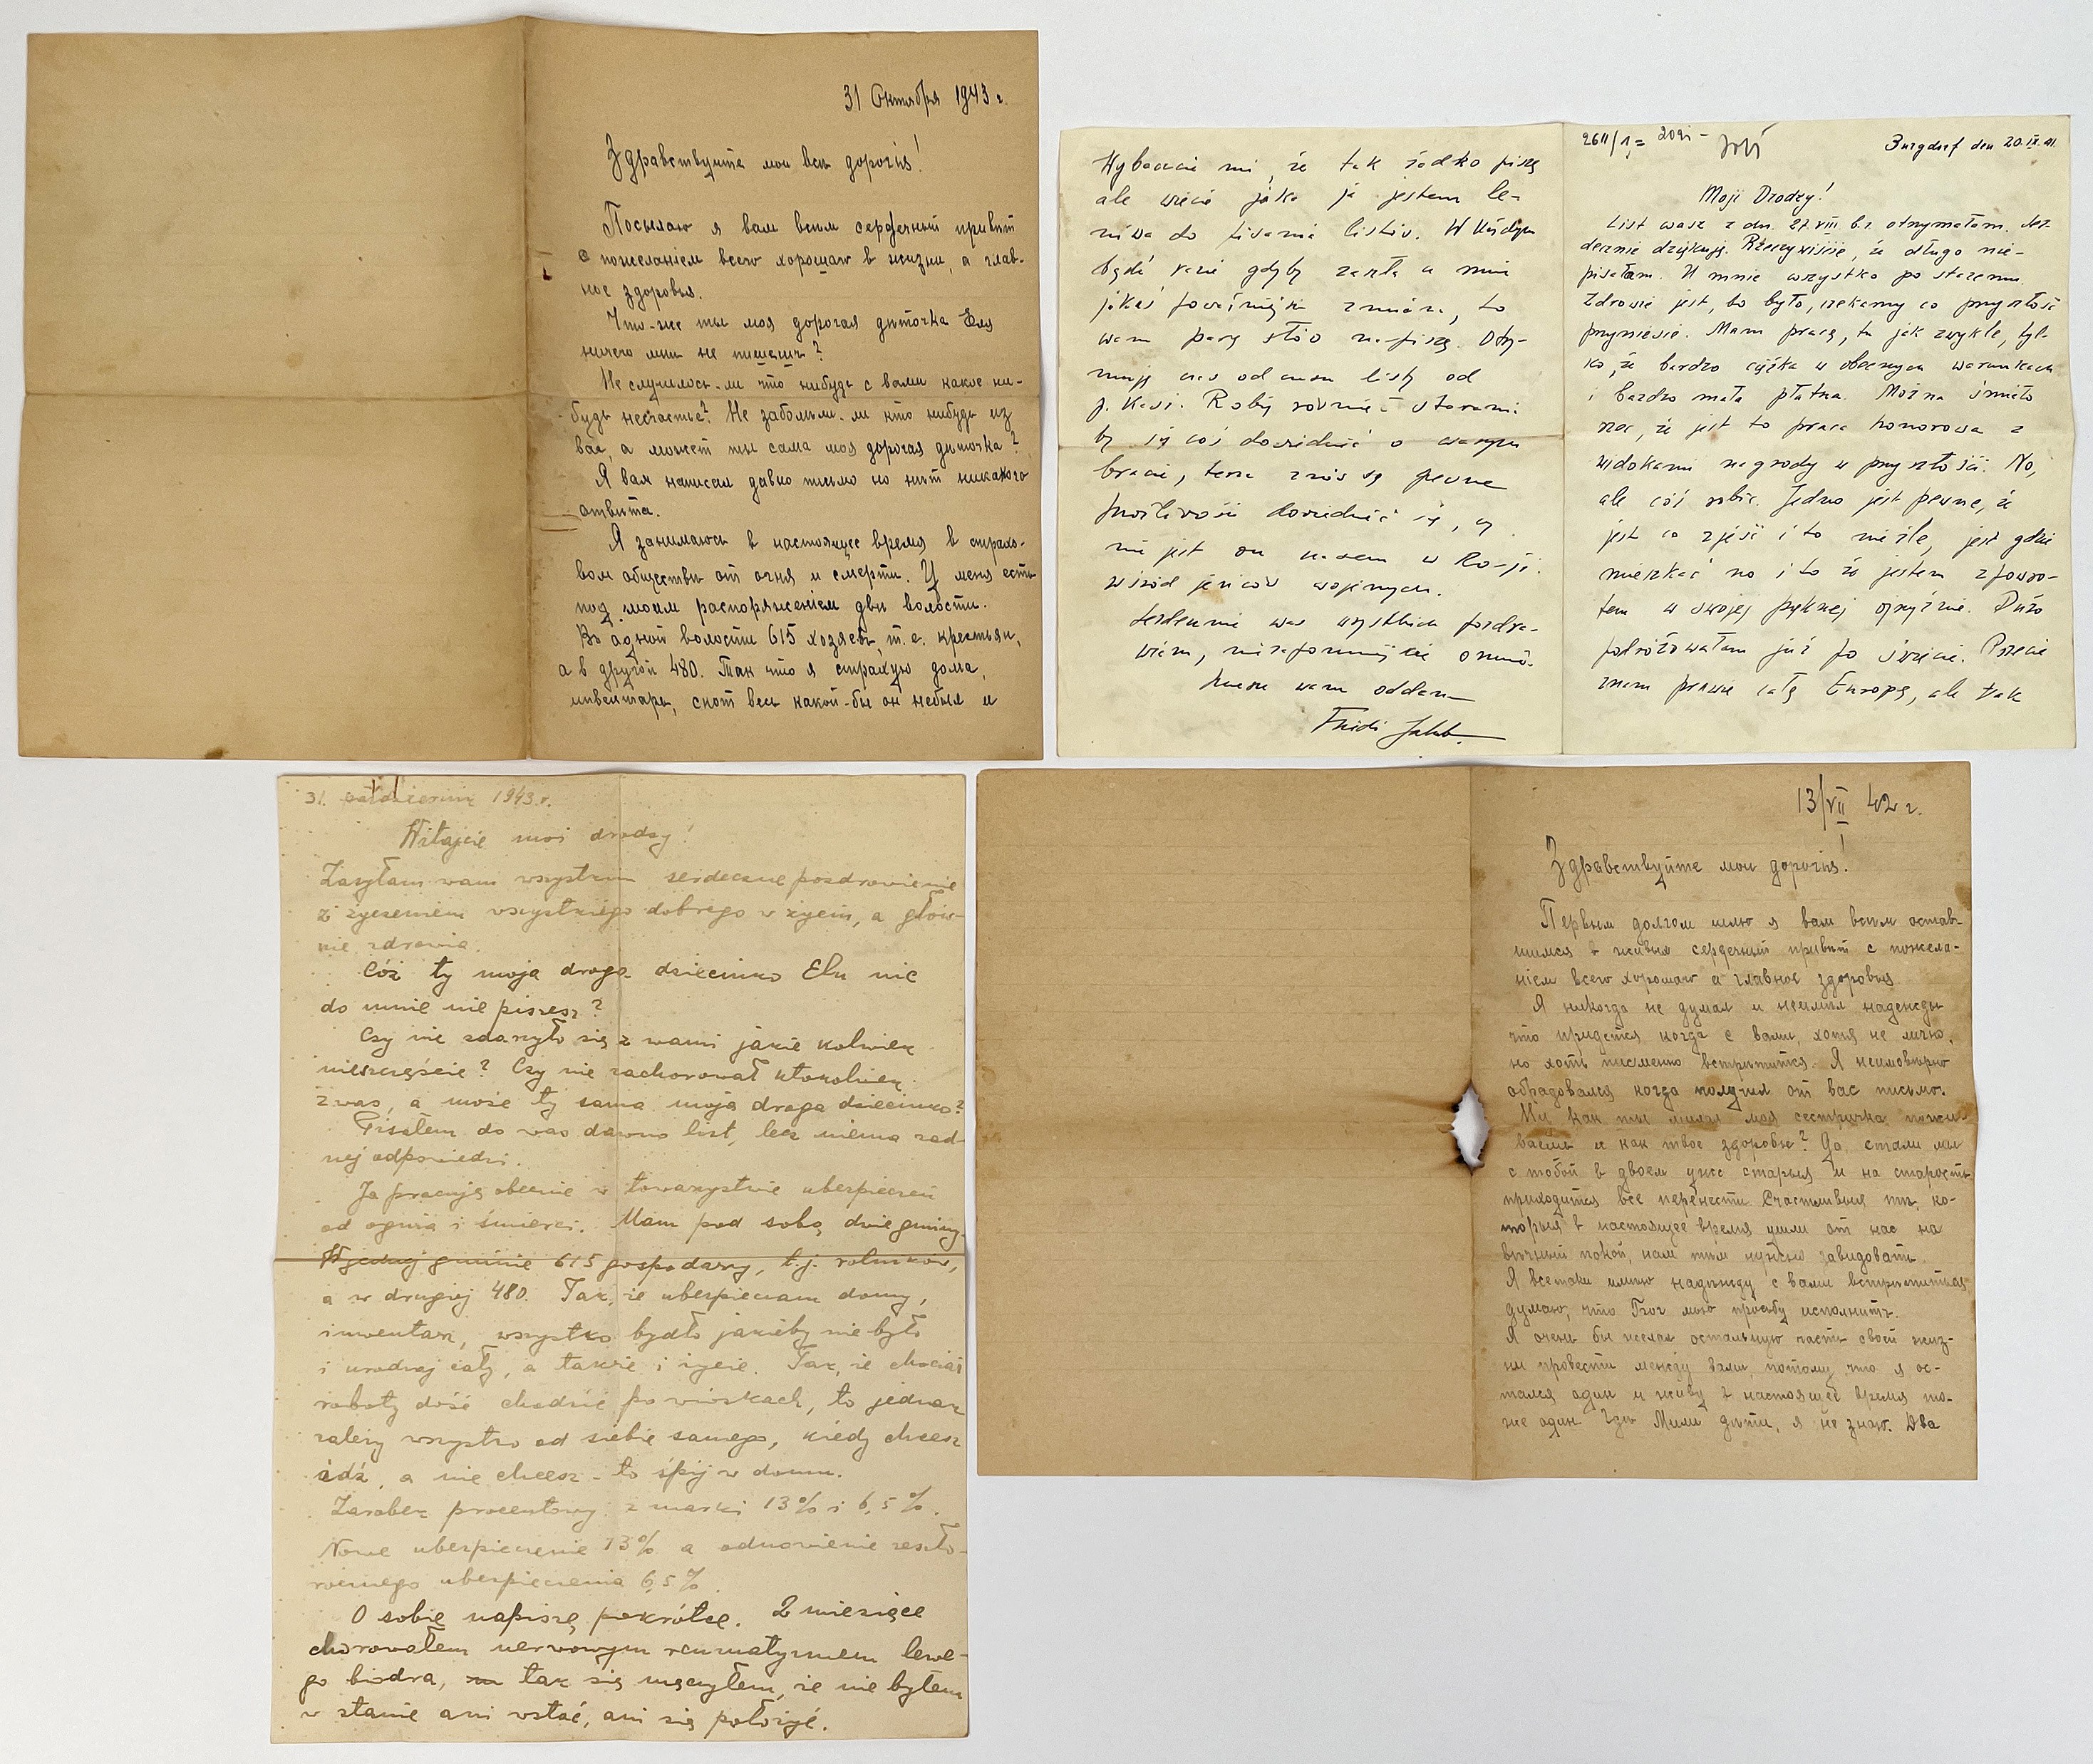 31 Октября 1943 г.
Здравствуйте мои всѣ дорогія!
Посылаю я вам всѣм сердечный привѣт
с пожеланіем всего хорошаго в жизни, а глав-
ное здоровья.
Что-же ты моя дорогая дѣточка Еля
ничего мнѣ не пишешь?
Не случилось-ли что нибудь с вами какое ни-
будь несчастье? Не заболѣли-ли кто нибудь из
вас, а может ты сама моя дорогая дѣточка?
Я вам написал давно письмо но нѣт никакого
отвѣта.
Я занимаюсь в настоящее время в страхо-
вом обществѣ от огня и смерти. У меня есть
под моим распоряженіем двѣ волости.
Во одной волости 615 хозяев, т.е. крестьян,
а в другой 480. Так что я страхую дома,
инвентарь, скот весь какой-бы он небыл и
Wybaczcie mi, że tak żadko piszę
ale wiecie jaka ja jestem le-
niwa do pisania listów. W każdym
bądź razie gdyby zaszła u mnie
jakaś poważniejsza zmiana, to
wam parę słów napiszę. Otrzy-
muję czas od czasu listy od
p. Kasi. Robię również starania
by się coś dowiedzieć o waszym
bracie, teraz znów są pewne
możliwości dowiedzieć się, czy
nie jest on czasem w Rosji
wśród jeńców wojennych.
Serdecznie was wszystkich pozdra-
wiam, niezapominajcie o mnie
zawsze wam oddana
Fridi
2611/1 =
Burgdorf den 20.IX.41.
Moji Drodzy!
List wasz z dn. 27.VIII b.r. otrzymałam. Ser-
decznie dziękuję. Rzeczywiście, że długo nie-
pisałam. U mnie wszystko po staremu.
Zdrowie jest, bo było, czekamy co przyszłość
przyniesie. Mam pracę, tu jak zwykle, tyl-
ko, że bardzo ciężka w obecnych warunkach
i bardzo mało płatna. Można śmiało
rzec, że jest to praca honorowa z
widokami nagrody w przyszłości. No,
ale cóż robić. Jedno jest pewne, że
jest co zjeść i to nieźle, jest gdzie
mieszkać no i to że jestem zpowro-
tem w swojej pięknej ojczyźnie. Dużo
podróżowałam już po świecie. Przecie
znam prawie całą Europę, ale tak
31. października 1943 r.
Witajcie moi drodzy!
Zasyłam wam wszystkim serdeczne pozdrowienie
z życzeniem wszystkiego dobrego w życiu, a głów-
nie zdrowia.
Cóż ty moja droga dziecinko Elu nic
do mnie nie piszesz?
Czy nie zdarzyło się z wami jakie kolwiek
nieszczęście? Czy nie zachorował ktokolwiek
z was, a może ty sama moja droga dziecinko?
Pisałem do was dawno list, lecz niema żad-
nej odpowiedzi.
Ja pracuję obecnie w towarzystwie ubezpieczeń
od ognia i śmierci. Mam pod sobą dwie gminy.
W jednej gminie 615 gospodarzy, t.j. rolników,
a w drugiej 480. Tak, że ubezpieczam domy,
inwentarz, wszystko bydło jakieby nie było
i urodzaj cały, a także i życie. Tak, że chociaż
roboty dość chodzić po wioskach, to jednak
zależy wszystko od siebie samego, kiedy chcesz
idź, a nie chcesz - to śpij w domu.
Zarobek procentowy z marki 13% i 6,5%.
Nowe ubezpieczenie 13% a odnowienie zeszło-
rocznego ubezpieczenia 6,5%.
O sobie napiszę pokrótce. 2 miesiące
chorowałem nerwowym reumatyzmem lewe-
go biodra, tak się męczyłem, że nie byłem
w stanie ani wstać, ani się położyć.
13/VII 42 г.
Здравствуйте мои дорогія!
Первым долгом шлю я вам всѣм остав-
шимся в живых сердечный привѣт с пожела-
ніем всего хорошаго а главное здоровья
Я никогда не думал и неимѣл надежды
что придется когда с вами, хотя не лично,
но хоть писменно встрѣтится. Я неимовѣрно
обрадовался когда получил от вас письмо.
Ну как ты милая моя сестричка пожи-
ваешь и как твое здоровье? Да, стали мы
с тобой в двоем уже старыя и на старость
приходится все перенести. Счастливыя тѣ, ко-
торыя в настоящее время ушли от нас на
вѣчный покой, нам тѣм нужно завидовать.
Я всетаки имѣю надежду с вами встрѣтиться
думаю, что Бог мою просьбу исполнит.
Я очень бы желал остальную часть своей жиз-
ни провести между вами, потому, что я ос-
тался один и живу в настоящее время то-
же один. Гдѣ Мили дѣти, я не знаю. Два